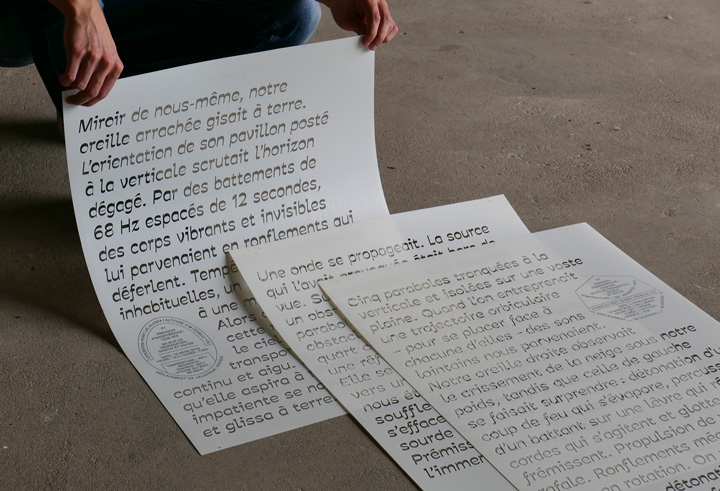 Miroir de nous-même, notre
oreille arrachée gisait à terre.
L'orientation de son pavillon posté
à la verticale scrutait l'horizon
dégagé. Par des battements de
68 Hz espacés de 12 secondes,
des corps vibrants et invisibles
lui parvenaient en ronflements qui
déferlent. Tempé
inhabituelles, un
à une m
Alors
cette
le cie
transpo
continu et aigu.
qu'elle aspira à
impatiente se no
et glissa à terre
Une onde se propageait. La source
qui l'avait provoquée était hors de
vue. Su
un obs
parabo
obstac
quart
une réf
Elle se
vers un
nous ét
souffle
s'efface
sourde
Prémiss
l'immer
Cinq paraboles tronquées à la
verticale et isolées sur une vaste
plaine. Quand l'on entreprenait
une trajectoire orbiculaire
- pour se placer face à
chacune d'elles - des sons
lointains nous parvenaient.
Notre oreille droite observait
le crissement de la neige sous notre
poids, tandis que celle de gauche
se faisait surprendre : détonation d'
coup de feu qui s'évapore, percuss
d'un battant sur une lèvre qui
cordes qui s'agitent et glotte
frémissent. Propulsion de
rafale. Ronflements mé
en rotation. On
détonat